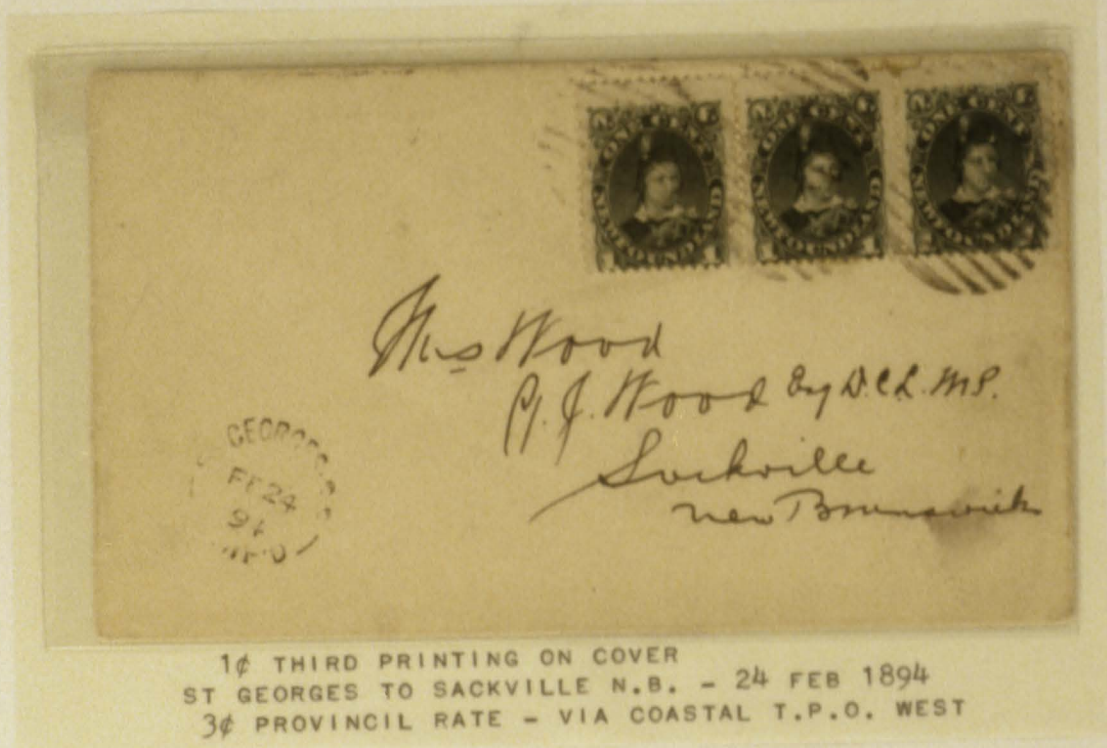 ONE CENT
NEWFOUNDLAND
1 1
ONE CENT
NEWFOUNDLAND
1 1
ONE CENT
NEWFOUNDLAND
Mrs Wood
J. Wood Esq D.C.L. M.P.
Sackville
New Brunswick
GEORGES
FE 24
94
1¢ THIRD PRINTING ON COVER
ST GEORGES TO SACKVILLE N.B. – 24 FEB 1894
3¢ PROVINCIL RATE – VIA COASTAL T.P.O. WEST